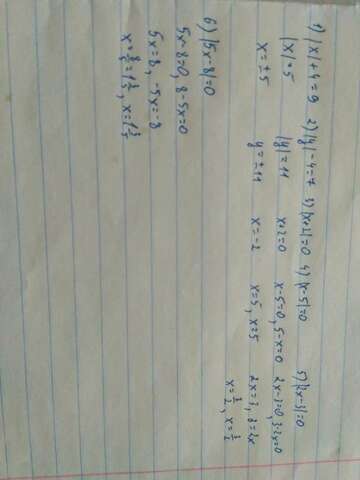 1) |x|+4=9 2) |y|-4=7 3) |x+2|=0 4) |x-5|=0 5) |2x-3|=0
|x|=5 |y|=11 x+2=0 x-5=0, 5-x=0 2x-3=0, 3-2x=0
x=±5 y=±11 x=-2 x=5, x=5 2x=3, 3=2x
x=3/2, x=3/2
6) |5x-8|=0
5x-8=0, 8-5x=0
5x=8, -5x=-8
x=8/5=1 3/5, x=1 3/5